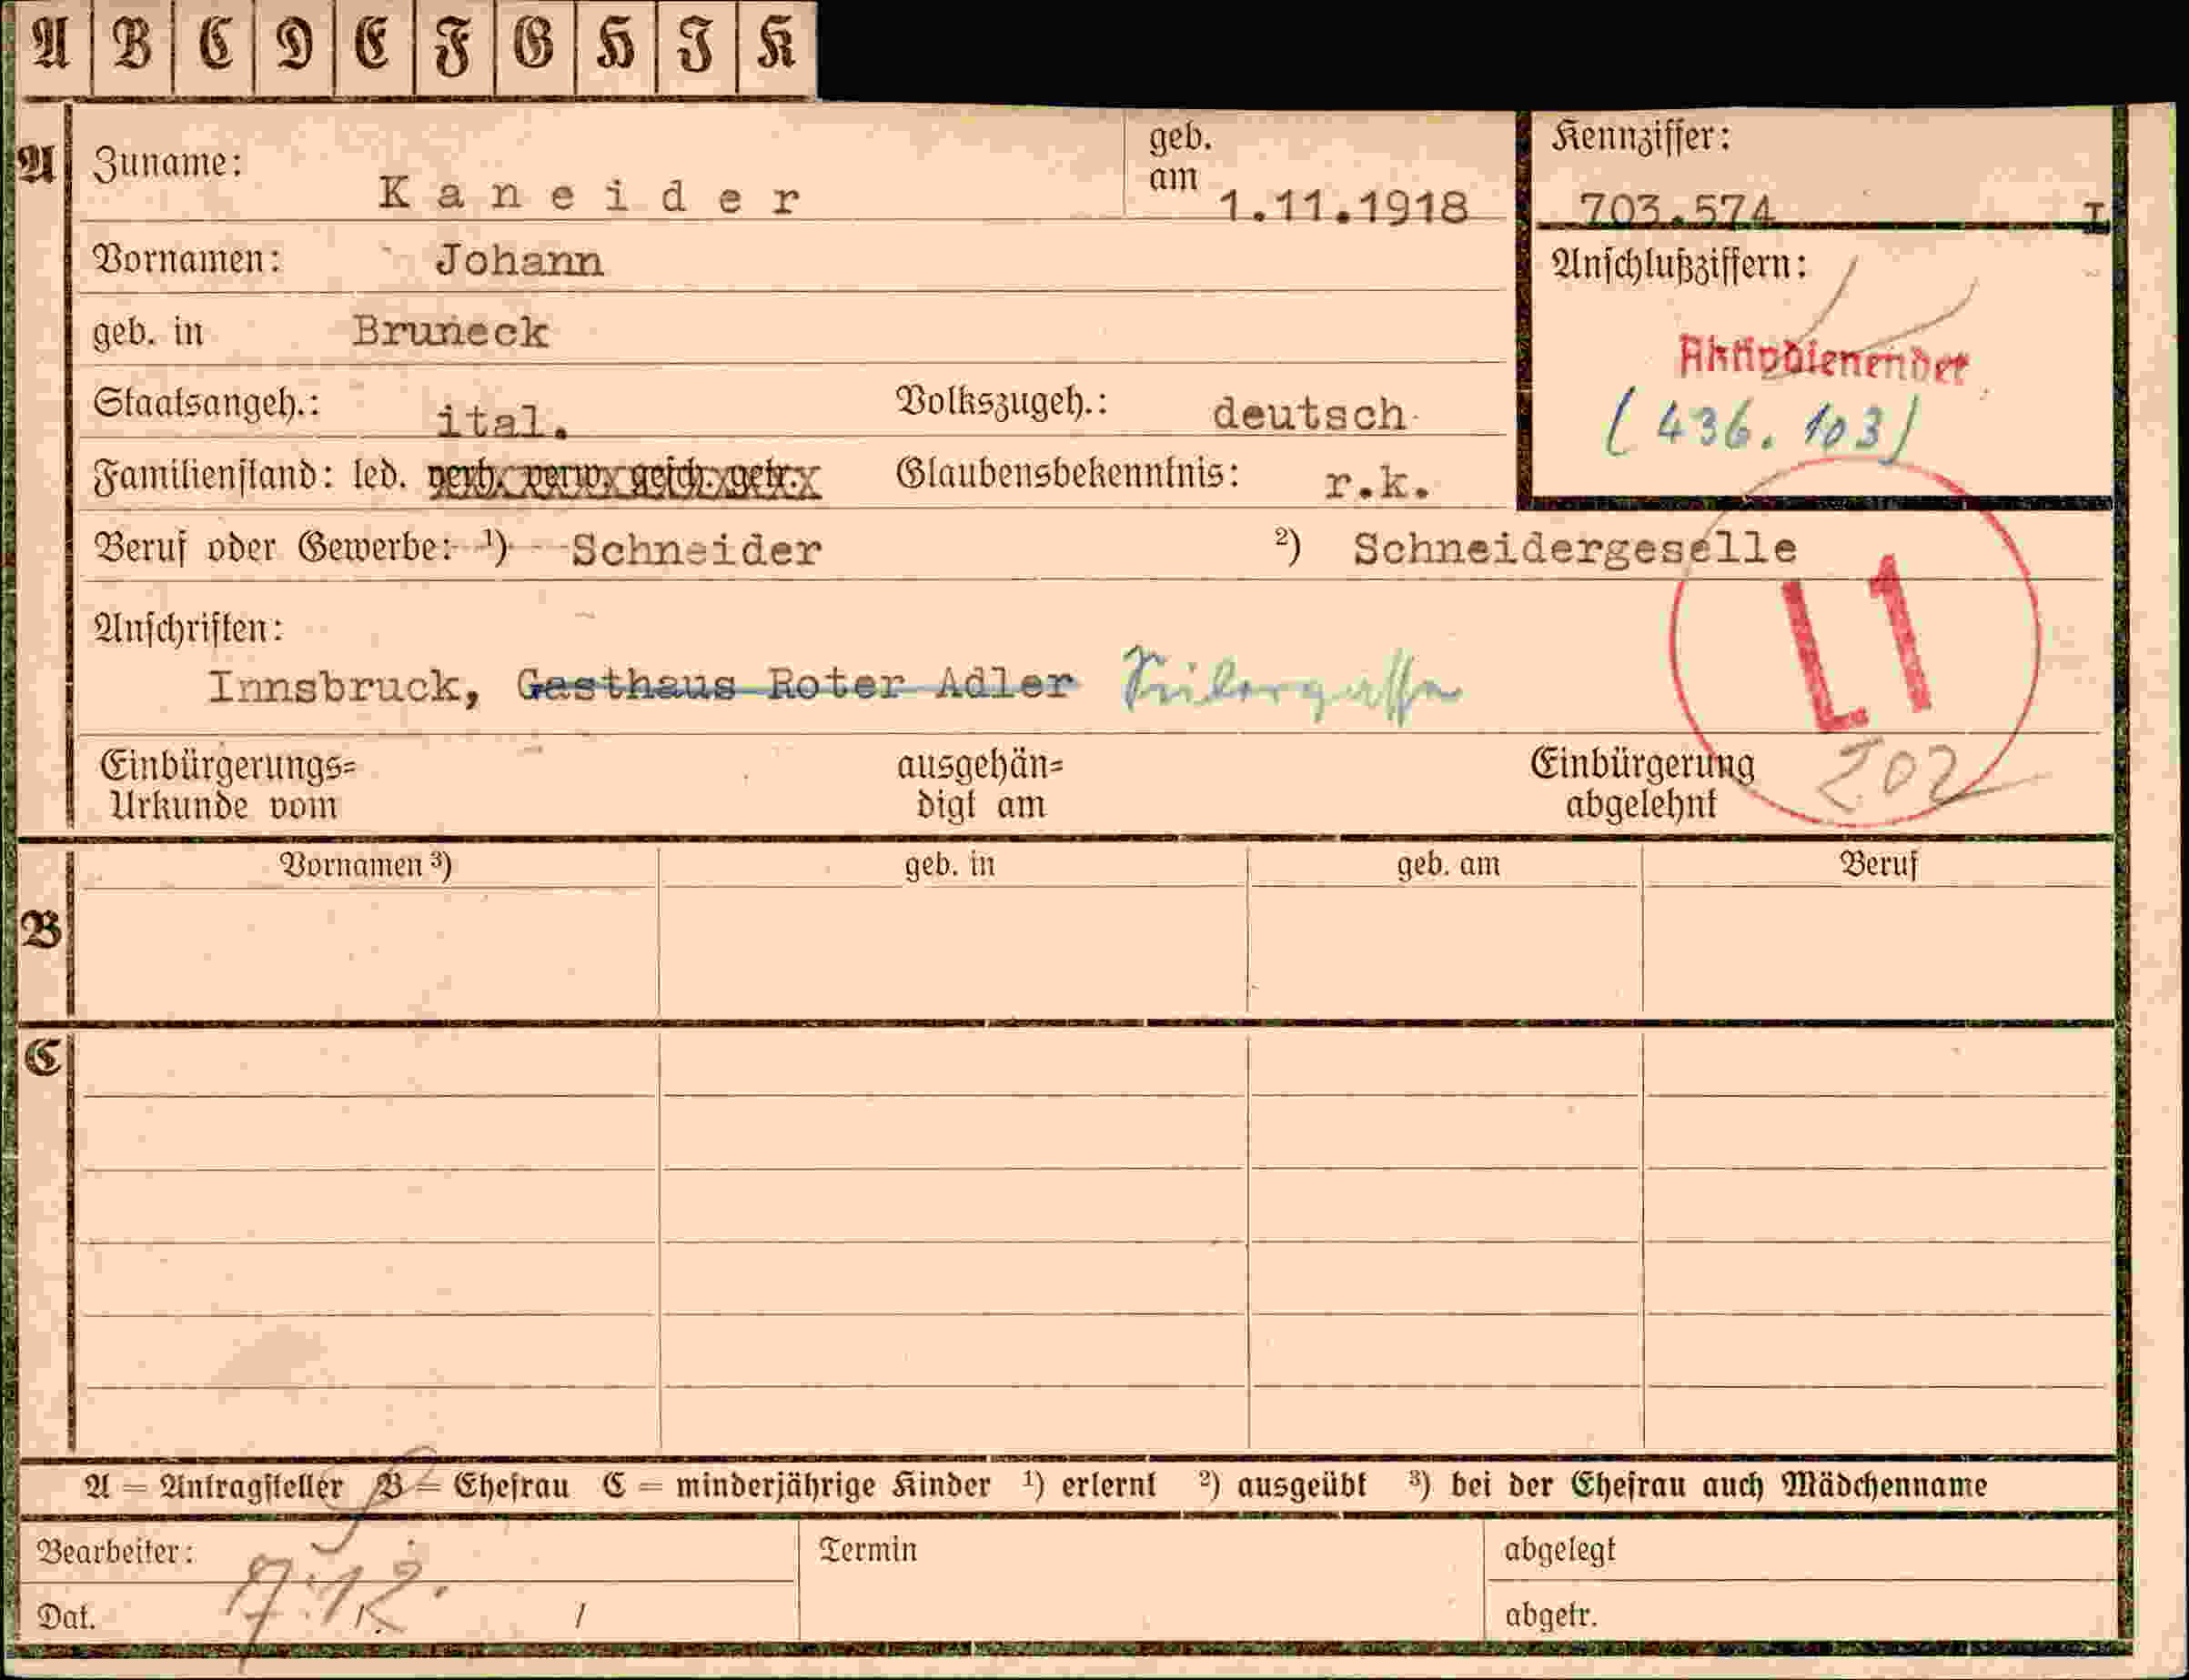 A B C D E F G H J K
A
Zuname: Kaneider
geb. am 1.11.1918
Kennziffer:
703.574 I
Vornamen: Johann
Anschlußziffern:
Aktivdienender
(436.103)
geb. in Bruneck
Staatsangeh.: ital. Volkszugeh.: deutsch
Familienstand: led. verh. verw. gesch. getr. Glaubensbekenntnis: r.k.
Beruf oder Gewerbe: ¹) Schneider ²) Schneidergeselle
L1
Anschriften:
Innsbruck, Gasthaus Roter Adler
Einbürgerungs=
Urkunde vom
ausgehän=
digt am
Einbürgerung
abgelehnt
202
B
Vornamen ³) geb. in geb. am Beruf
C
A = Antragsteller B = Ehefrau C = minderjährige Kinder ¹) erlernt ²) ausgeübt ³) bei der Ehefrau auch Mädchenname
Bearbeiter: Termin abgelegt
Dat. 7.12. / abgetr.